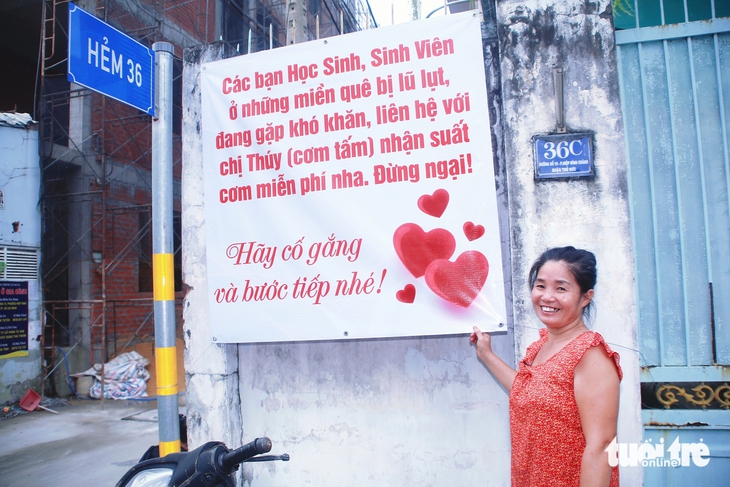 HẺM 36
Các bạn Học Sinh, Sinh Viên
ở những miền quê bị lũ lụt,
đang gặp khó khăn, liên hệ với
chị Thúy (cơm tấm) nhận suất
cơm miễn phí nha. Đừng ngại!
Hãy cố gắng
và bước tiếp nhé!
36C
tuổi trẻ
online